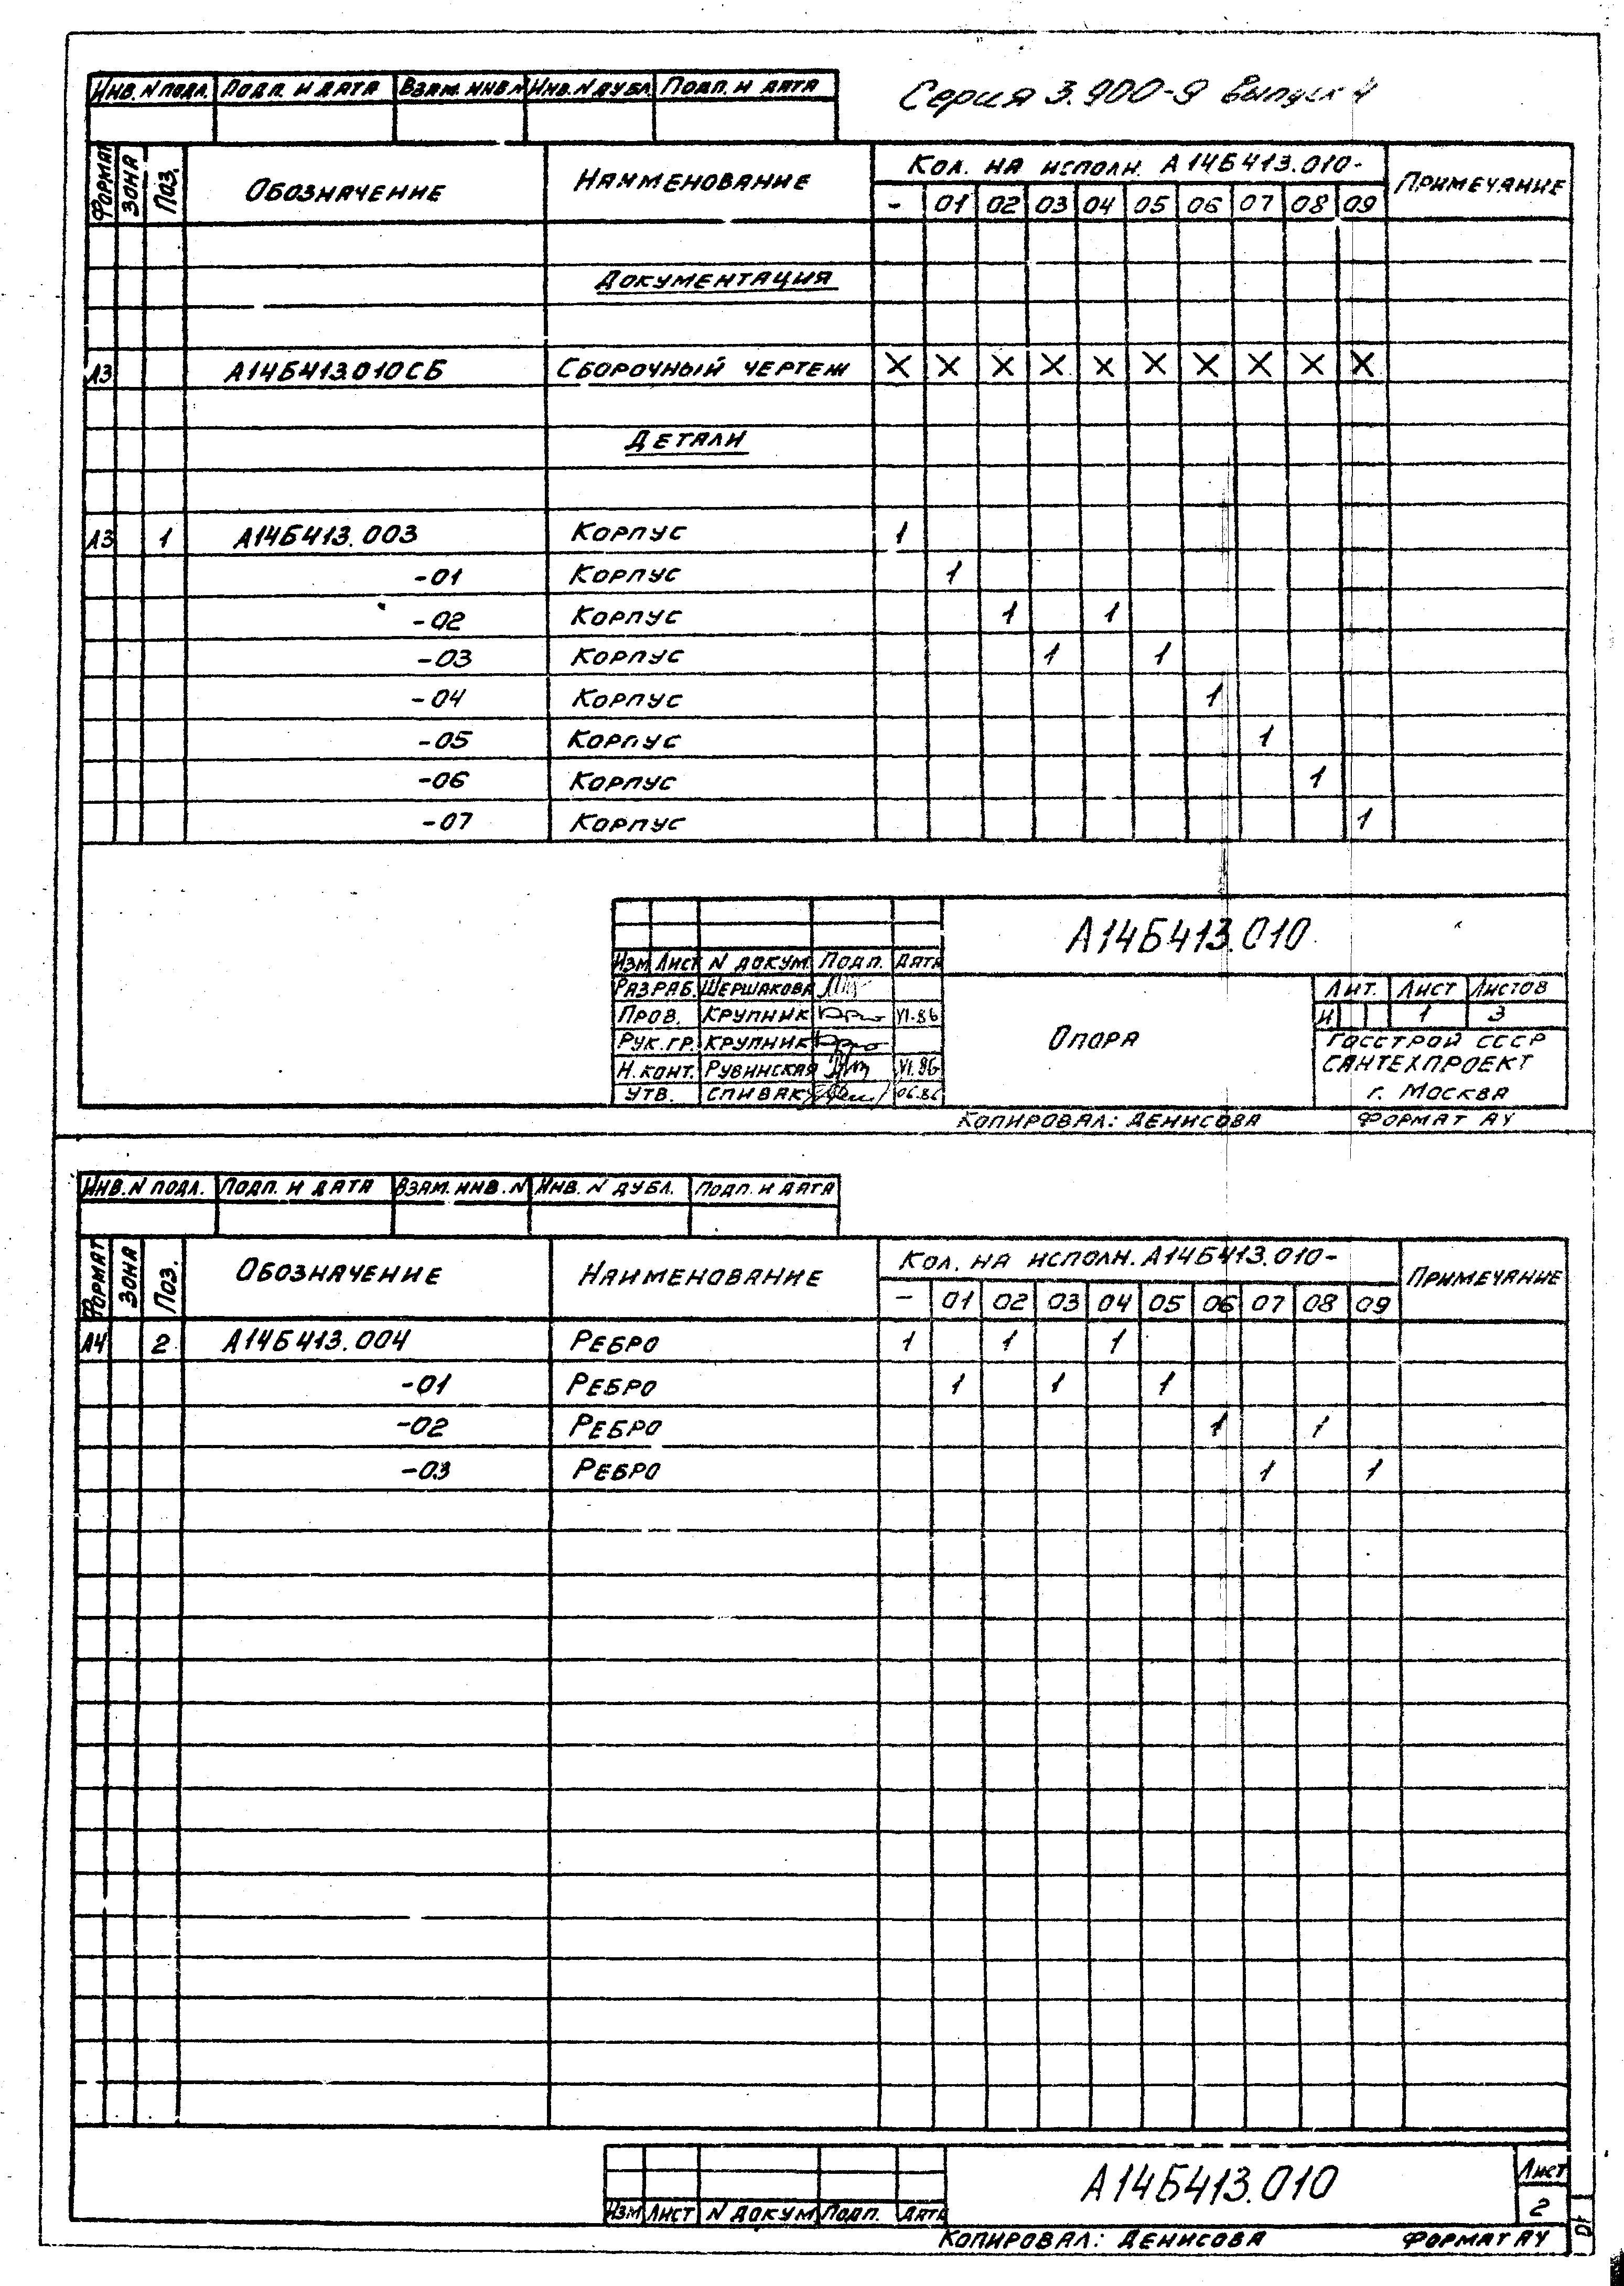 Серия 3.900-9 выпуск 4
Инв. N подл. Подп. и дата Взам. инв. N Инв. N дубл. Подп. и дата
Формат Зона Поз. Обозначение Наименование Кол. на исполн. А14Б413.010- Примечание
- 01 02 03 04 05 06 07 08 09
Документация
А3 А14Б413.010СБ Сборочный чертеж X X X X X X X X X X
Детали
А3 1 А14Б413.003 Корпус 1
-01 Корпус 1
-02 Корпус 1 1
-03 Корпус 1 1
-04 Корпус 1
-05 Корпус 1
-06 Корпус 1
-07 Корпус 1
А14Б413.010
Изм Лист N докум. Подп. Дата
Разраб. Шершакова
Пров. Крупник VI.86
Рук.гр. Крупник
Н.конт. Рувинская VI.86
Утв. Спивак 06.86
Опора
Лит. Лист Листов
И 1 3
Госстрой СССР
Сантехпроект
г. Москва
Копировал: Денисова Формат А4
Инв. N подл. Подп. и дата Взам. инв. N Инв. N дубл. Подп. и дата
Формат Зона Поз. Обозначение Наименование Кол. на исполн. А14Б413.010- Примечание
- 01 02 03 04 05 06 07 08 09
А4 2 А14Б413.004 Ребро 1 1 1
-01 Ребро 1 1 1
-02 Ребро 1 1
-03 Ребро 1 1
А14Б413.010
Лист
2
Изм Лист N докум. Подп. Дата
Копировал: Денисова Формат А4